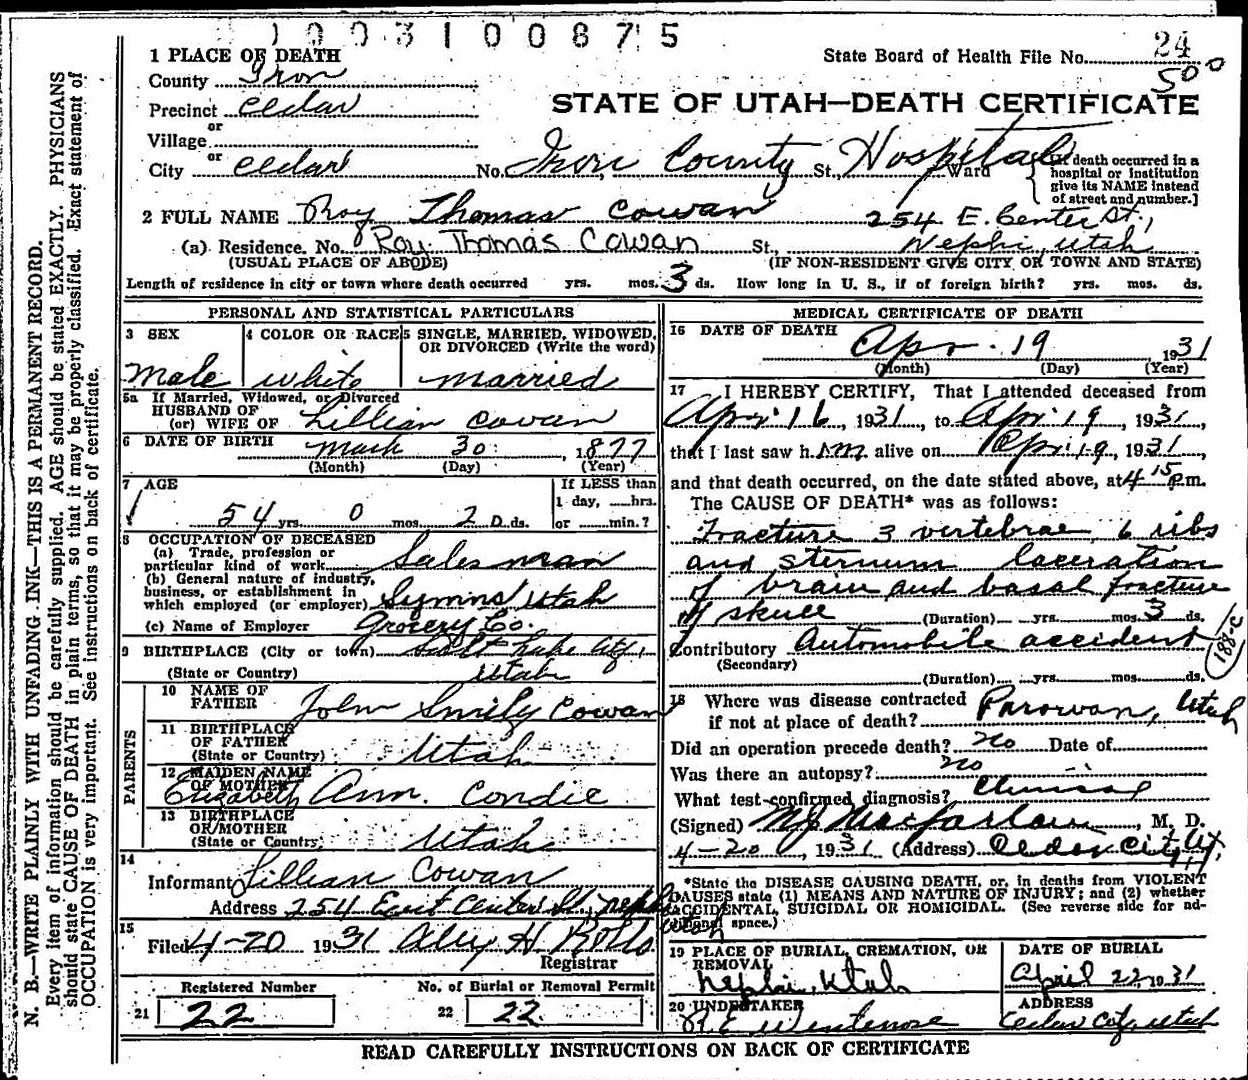 1003100875
1 PLACE OF DEATH
State Board of Health File No. 24
County Iron
500
Precinct Cedar
STATE OF UTAH—DEATH CERTIFICATE
or
Village
or
City Cedar No. Iron County St., Hospital Ward
[If death occurred in a
hospital or institution
give its NAME instead
of street and number.]
2 FULL NAME Roy Thomas Cowan 254 E. Center St.,
(a) Residence. No. Roy Thomas Cowan St., Nephi, Utah
(USUAL PLACE OF ABODE) (IF NON-RESIDENT GIVE CITY OR TOWN AND STATE)
Length of residence in city or town where death occurred yrs. mos. 3 ds. How long in U. S., if of foreign birth? yrs. mos. ds.
PERSONAL AND STATISTICAL PARTICULARS
3 SEX 4 COLOR OR RACE 5 SINGLE, MARRIED, WIDOWED,
OR DIVORCED (Write the word)
Male white married
5a If Married, Widowed, or Divorced
HUSBAND OF
(or) WIFE OF Lillian Cowan
6 DATE OF BIRTH
mach 30 , 1877
(Month) (Day) (Year)
7 AGE If LESS than
1 day, ......hrs.
54 yrs. 0 mos. 2 D ds. or ......min.?
8 OCCUPATION OF DECEASED
(a) Trade, profession or
particular kind of work Salesman
(b) General nature of industry,
business, or establishment in
which employed (or employer) Symns Utah
(c) Name of Employer Grocery Co.
9 BIRTHPLACE (City or town) Salt Lake City,
(State or Country) Utah
PARENTS
10 NAME OF
FATHER John Smily Cowan
11 BIRTHPLACE
OF FATHER
(State or Country) Utah
12 MAIDEN NAME
OF MOTHER
Elizabeth Ann. Condie
13 BIRTHPLACE
OF MOTHER
(State or Country) Utah
14
Informant Lillian Cowan
Address 254 East Center St., Nephi
Utah
15
Filed 4-20 1931
Registrar
Registered Number No. of Burial or Removal Permit
21 22 22 22
MEDICAL CERTIFICATE OF DEATH
16 DATE OF DEATH
Apr. 19 , 1931
(Month) (Day) (Year)
17 I HEREBY CERTIFY, That I attended deceased from
Apr. 16, 1931, to Apr. 19, 1931,
that I last saw him alive on Apr. 19, 1931,
and that death occurred, on the date stated above, at 4 15 p.m.
The CAUSE OF DEATH* was as follows:
Fracture 3 vertebrae, 6 ribs
and sternum laceration
of brain and basal fracture
of skull (Duration) yrs. mos. 3 ds.
Contributory Automobile accident
(Secondary)
188-c
(Duration) yrs. mos. ds.
18 Where was disease contracted
if not at place of death? Parowan, Utah
Did an operation precede death? no Date of
Was there an autopsy? no
What test confirmed diagnosis? Clinical
(Signed) M J Macfarlane, M. D.
4-20, 1931 (Address) Cedar City, Ut.
*State the DISEASE CAUSING DEATH, or, in deaths from VIOLENT
CAUSES state (1) MEANS AND NATURE OF INJURY; and (2) whether
ACCIDENTAL, SUICIDAL OR HOMICIDAL. (See reverse side for ad-
ditional space.)
19 PLACE OF BURIAL, CREMATION, OR
REMOVAL
Nephi, Utah
DATE OF BURIAL
April 22 1931
20 UNDERTAKER
ADDRESS
Cedar City Utah
READ CAREFULLY INSTRUCTIONS ON BACK OF CERTIFICATE
N. B.—WRITE PLAINLY WITH UNFADING INK—THIS IS A PERMANENT RECORD.
Every item of information should be carefully supplied. AGE should be stated EXACTLY. PHYSICIANS
should state CAUSE OF DEATH in plain terms, so that it may be properly classified. Exact statement of
OCCUPATION is very important. See instructions on back of certificate.